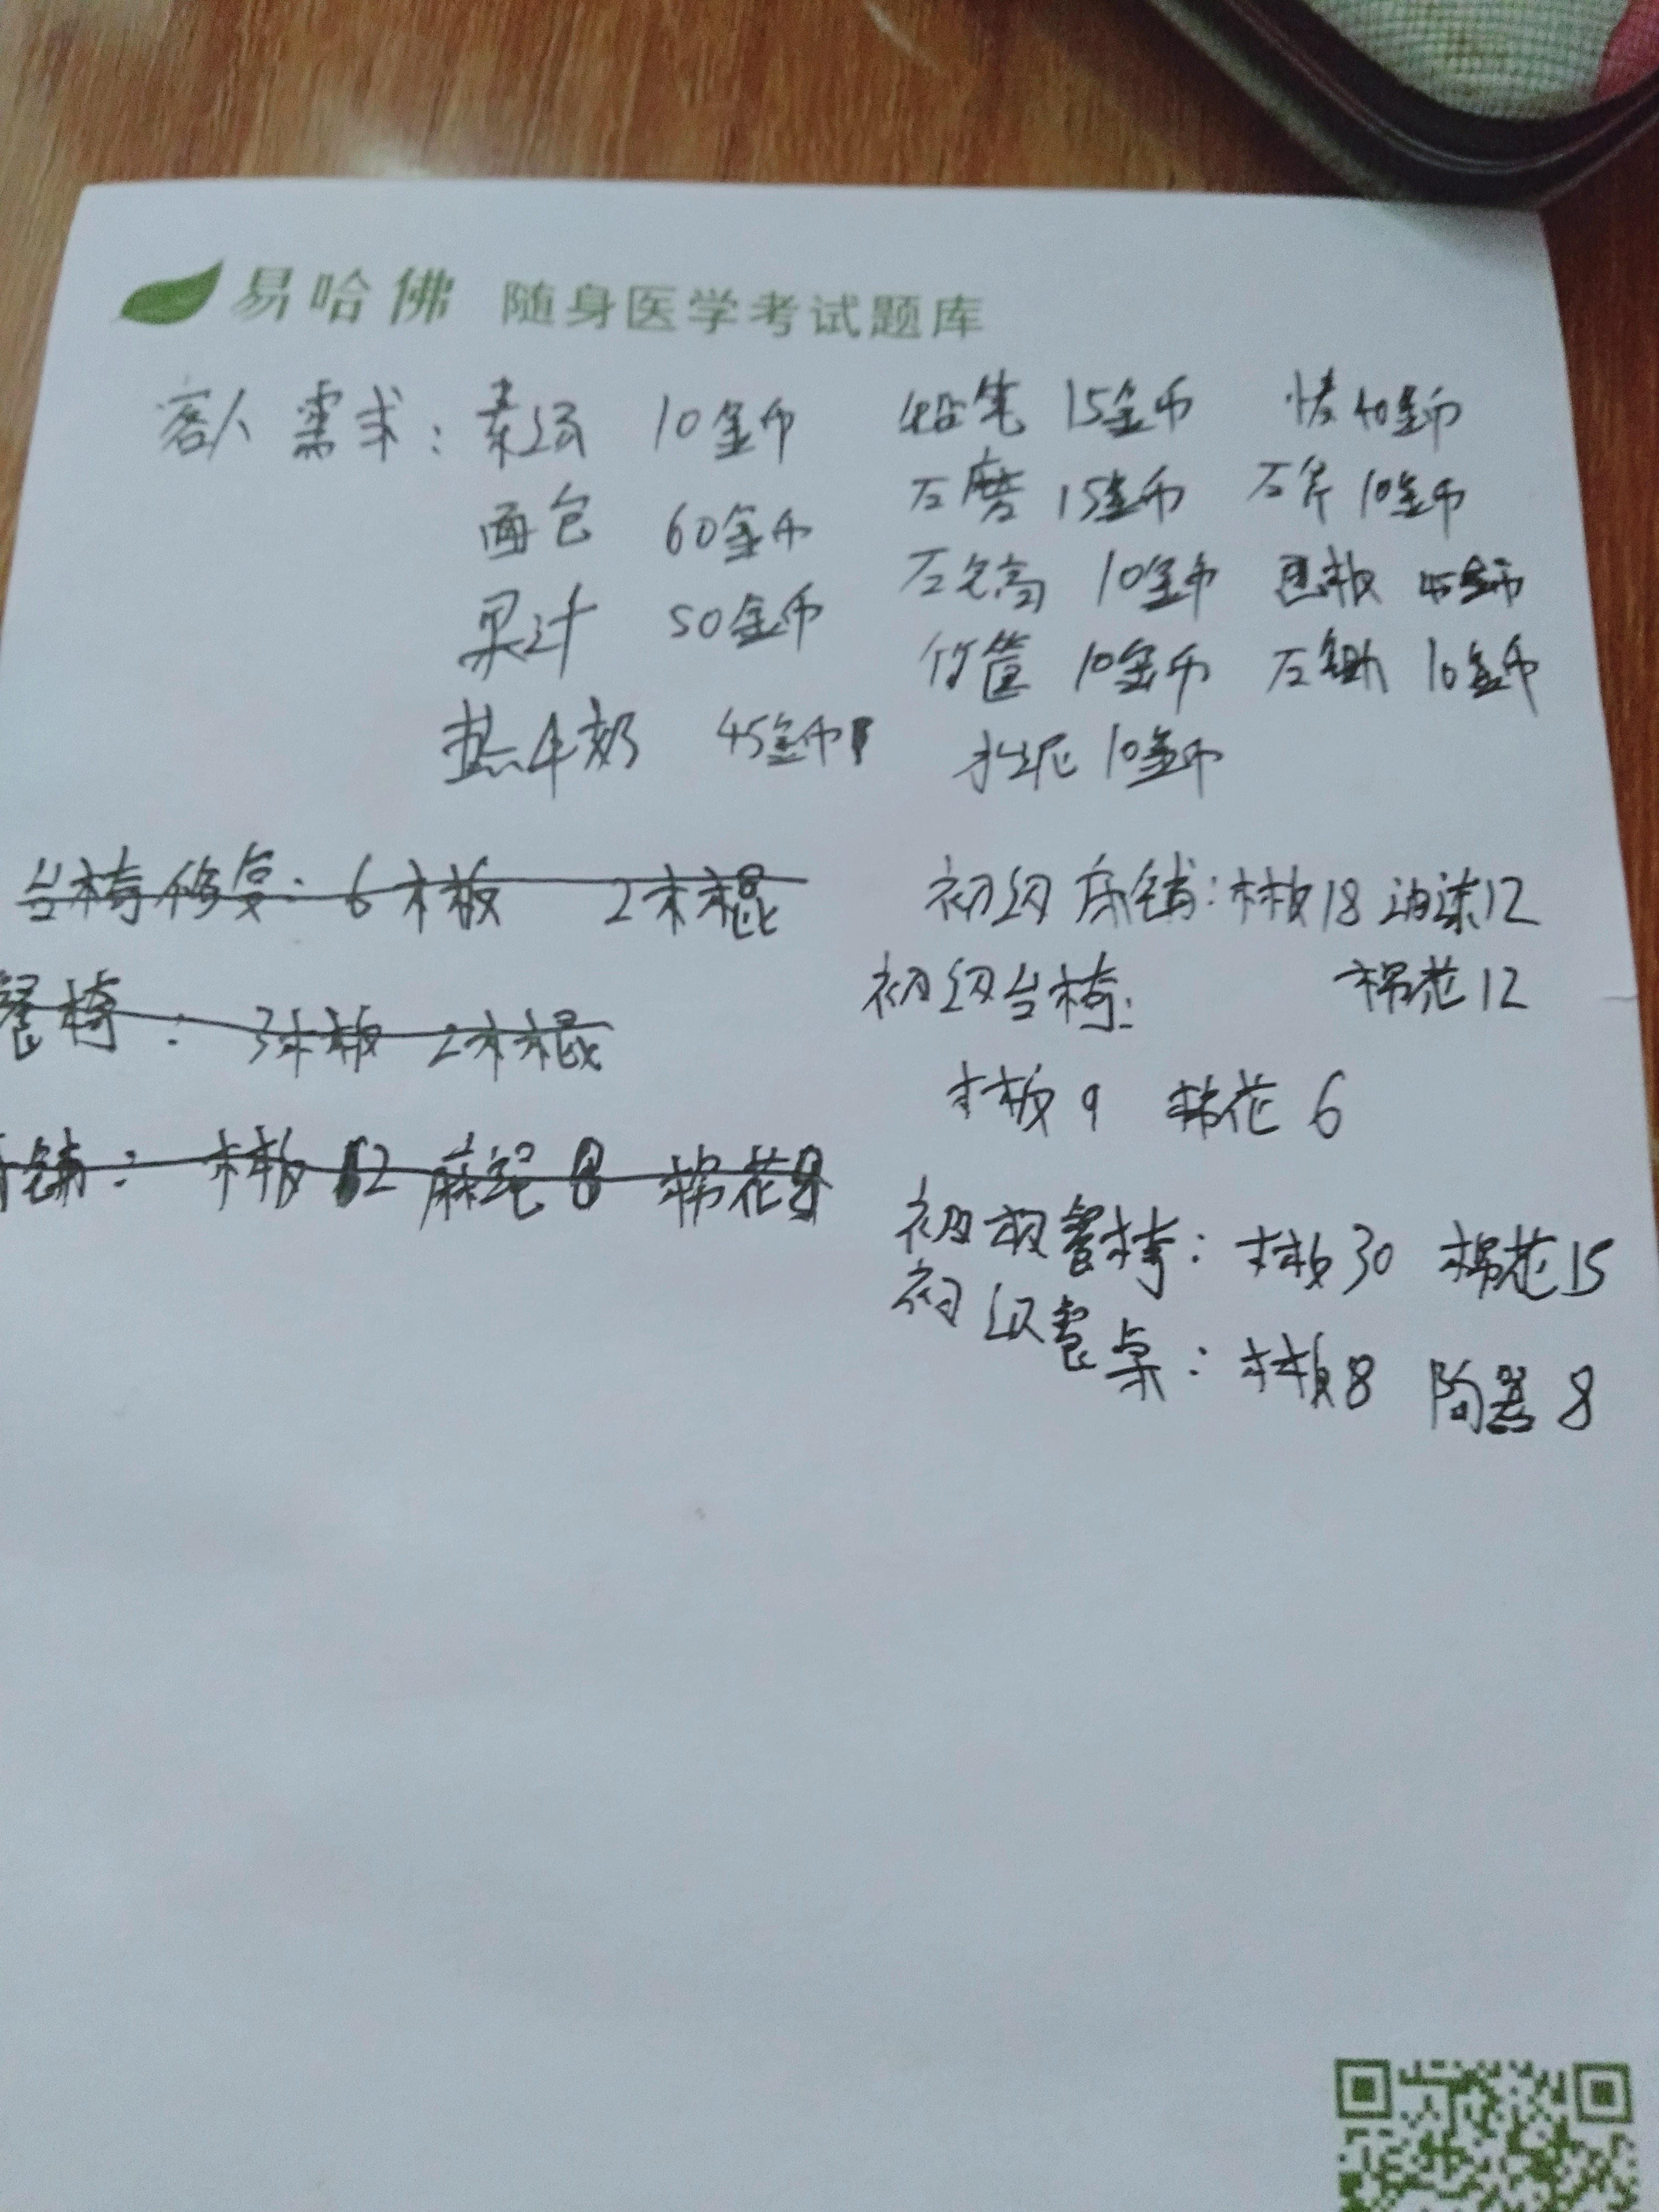 易哈佛 随身医学考试题库
客人需求: 素汤 10金币 铅笔 15金币 40金币
面包 60金币 石磨 15金币 石斧 10金币
果汁 50金币 石镐 10金币 黑板 45金币
热牛奶 45金币 竹筐 10金币 石锄 10金币
水泥 10金币
台椅修复: 6木板 2木棍
餐椅: 3木板 2木棍
铺: 木板12 麻绳8 棉花8
初级床铺: 木板18 油漆12
棉花12
初级台椅:
木板9 棉花6
初级餐椅: 木板30 棉花15
初级餐桌: 木板8 陶器8